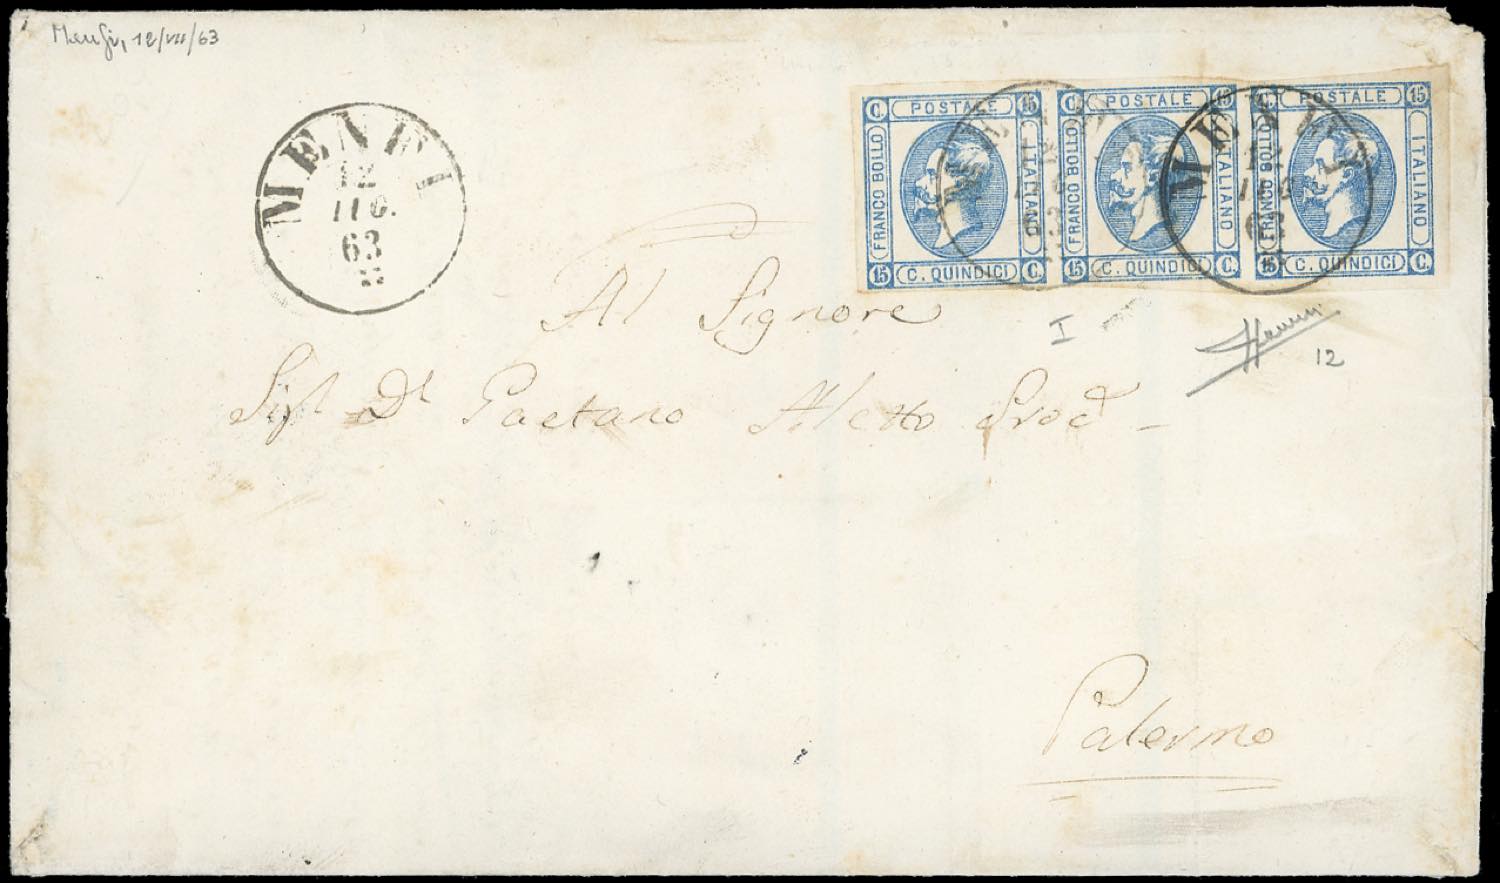 Menfi, 12/VII/63
MENFI
12
LUG.
63
C. POSTALE 15
FRANCO BOLLO
ITALIANO
15 C. QUINDICI C.
C. POSTALE 15
FRANCO BOLLO
ITALIANO
15 C. QUINDICI C.
C. POSTALE 15
FRANCO BOLLO
ITALIANO
15 C. QUINDICI C.
MENFI
12
LUG
63
MENFI
12
LUG
63
Al Signore
I
12
Sigr Dn Gaetano Aletto Procr
Palermo